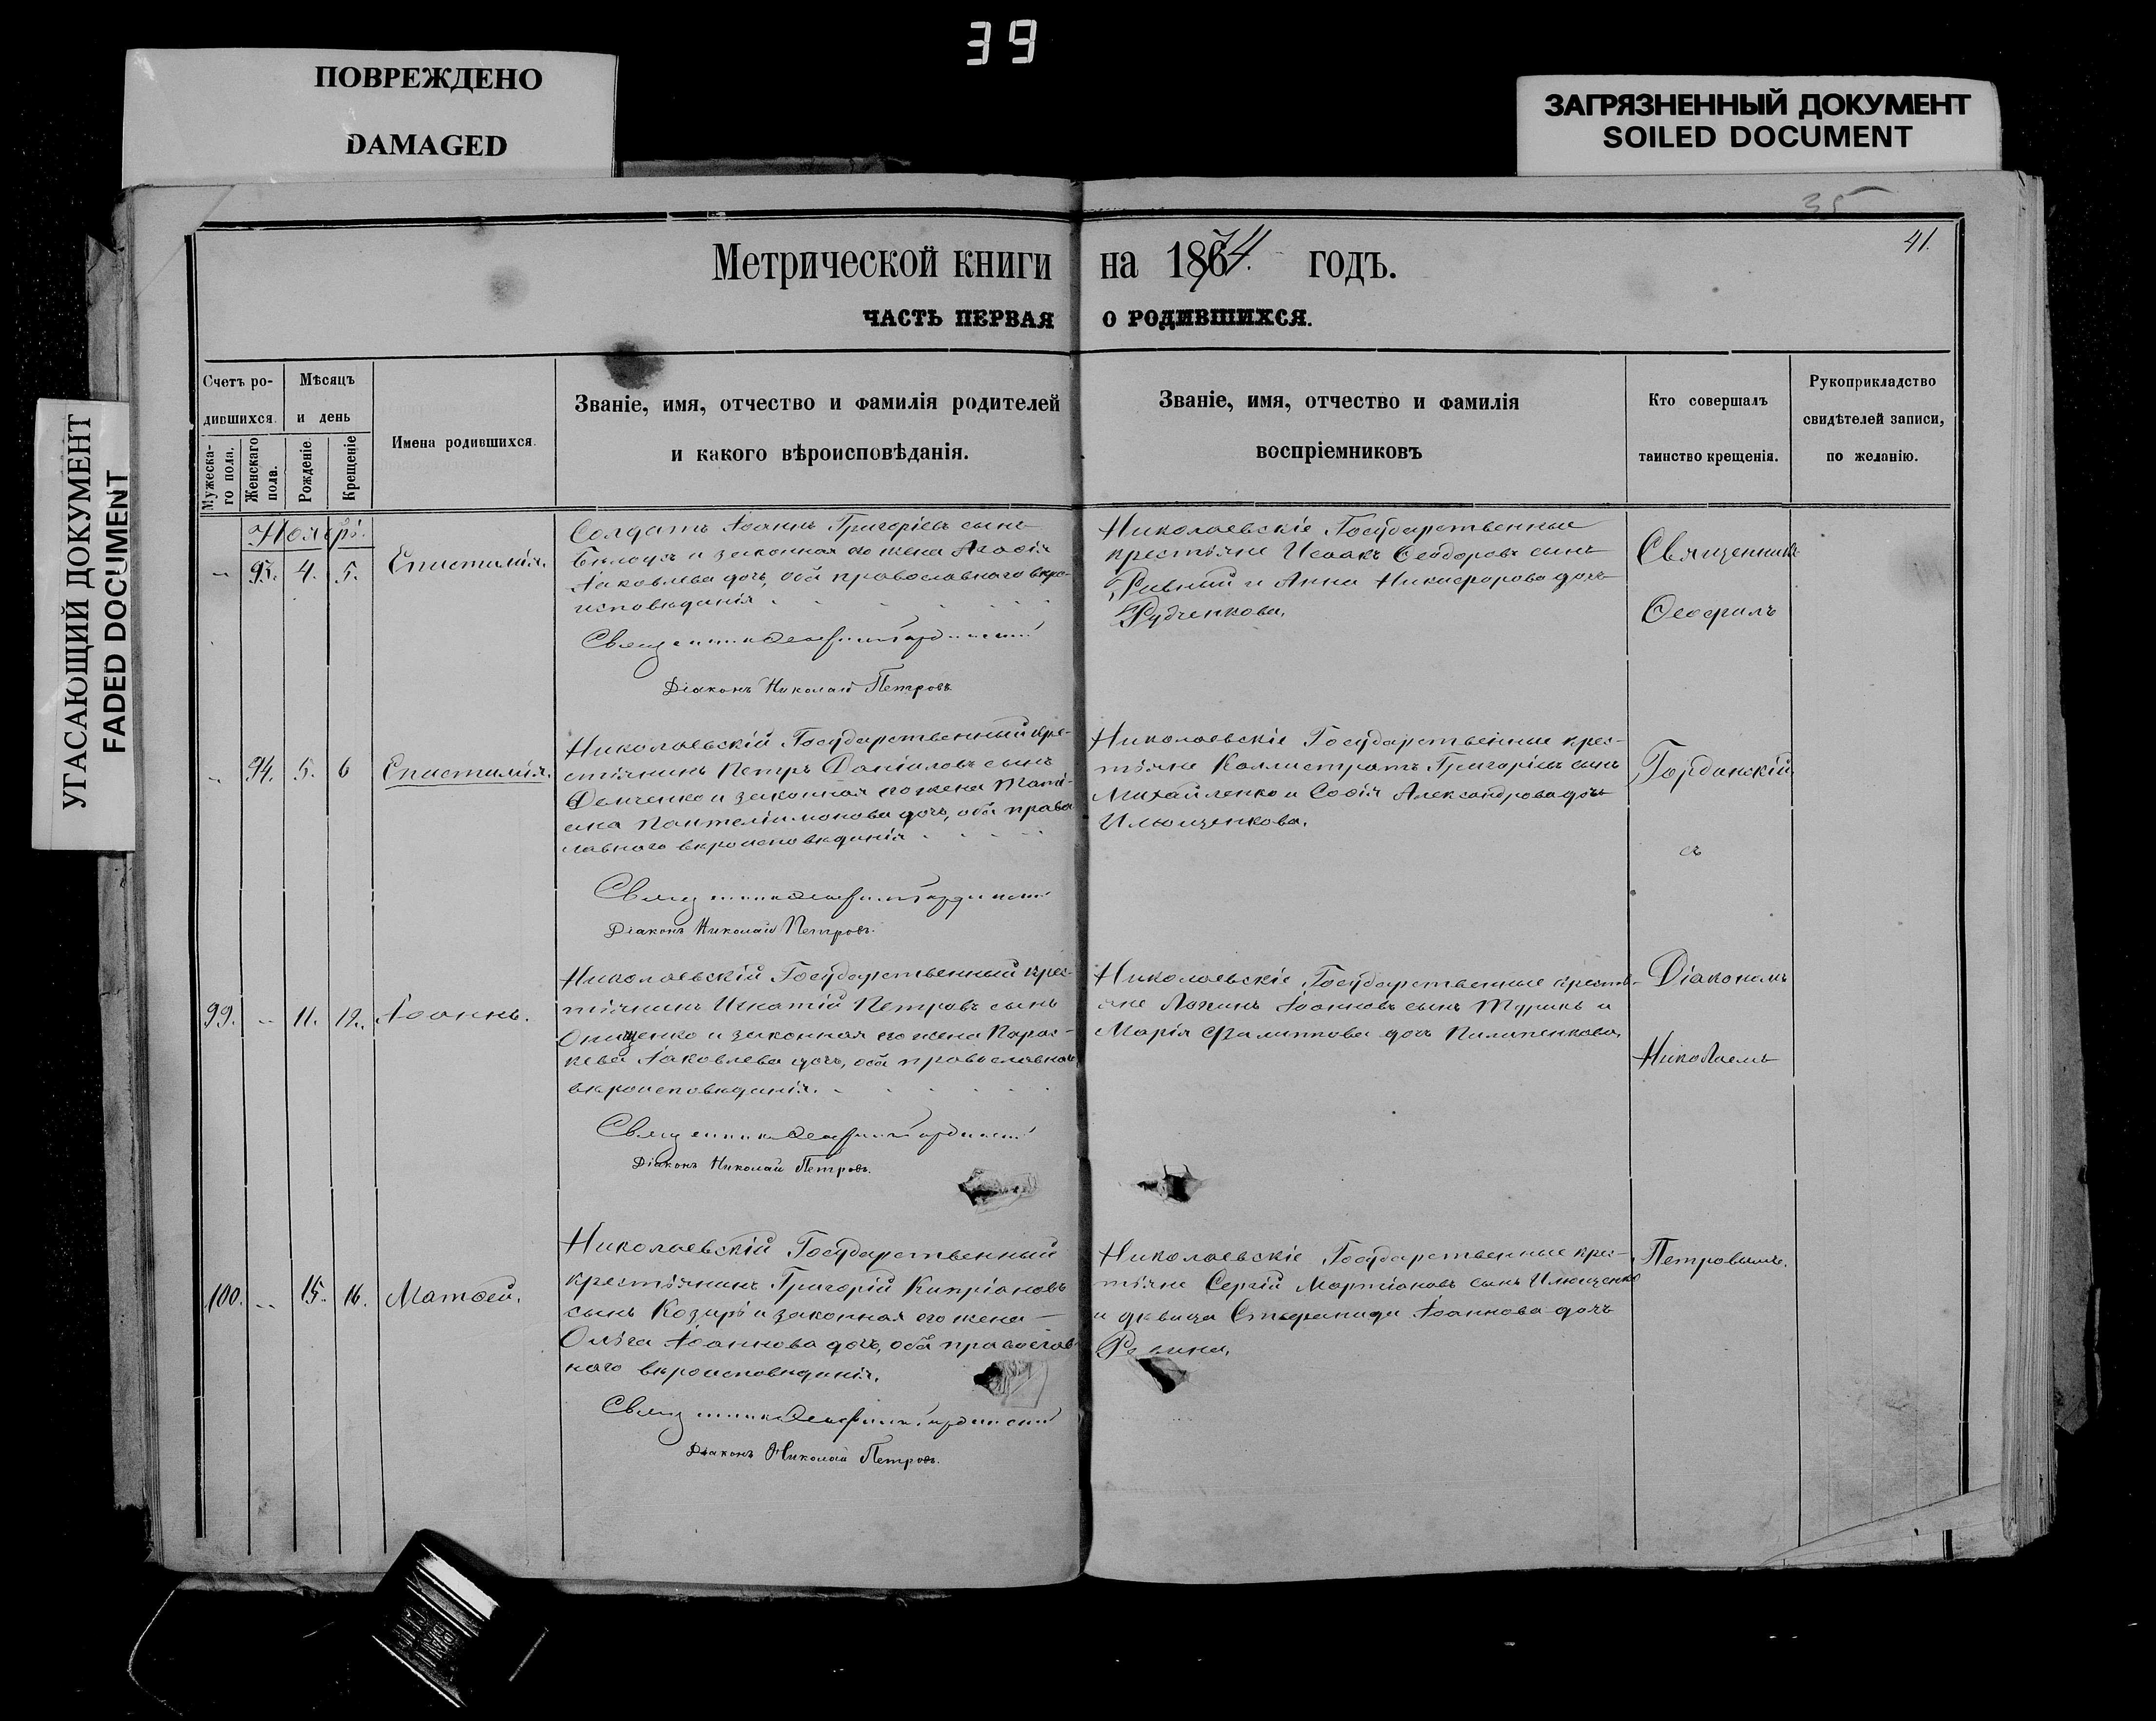 39
ПОВРЕЖДЕНО
DAMAGED
ЗАГРЯЗНЕННЫЙ ДОКУМЕНТ
SOILED DOCUMENT
УГАСАЮЩИЙ ДОКУМЕНТ
FADED DOCUMENT
35
41.
Метрической книги на 1874. годъ.
ЧАСТЬ ПЕРВАЯ О РОДИВШИХСЯ.
Счетъ родившихся.
Мужескаго пола.
Женскаго пола.
Мѣсяцъ и день
Рожденіе
Крещеніе
Имена родившихся.
Званіе, имя, отчество и фамилія родителей
и какого вѣроисповѣданія.
Званіе, имя, отчество и фамилія
воспріемниковъ
Кто совершалъ
таинство крещенія.
Рукоприкладство
свидѣтелей записи,
по желанію.
Ноябрь.
93. 4. 5. Епистимія.
Солдатъ Іоаннъ Григоріевъ сынъ
и законная его жена Агаѳія
Іаковлева дочь, оба православнаго вѣро-
исповѣданія
Діаконъ Николай Петровъ
Николаевскіе Государственные
крестьяне Исаакъ Ѳеодоровъ сынъ
и Анна Никифорова дочь
Рудченкова.
Священникъ
Ѳеофилъ
94. 5. 6 Епистимія.
Николаевскій Государственный кре-
стьянинъ Петръ Даніиловъ сынъ
Демченко и законная его жена Тати-
ана Пантелиимонова дочь, оба право-
славнаго вѣроисповѣданія
Діаконъ Николай Петровъ.
Николаевскіе Государственные крес-
тьяне Каллистратъ Григоріевъ сынъ
Михайленко и Софія Александрова дочь
Илющенкова.
Гордински́й
съ
99. 11. 12. Іоаннъ.
Николаевскій Государственный крес-
тьянинъ Игнатій Петровъ сынъ
Онищенко и законная его жена Парас-
кева Іаковлева дочь, оба православнаго
вѣроисповѣданія.
Діаконъ Николай Петровъ.
Николаевскіе Государственные кресть-
яне Логинъ Іоанновъ сынъ и
Марія Филиппова дочь Пилипенкова.
Діакономъ
Николаемъ
100. 15. 16. Матѳей.
Николаевскій Государственный
крестьянинъ Григорій Кипріановъ
сынъ Козырь и законная его жена
Ольга Іоаннова дочь, оба православ-
наго вѣроисповѣданія.
Діаконъ Николай Петровъ.
Николаевскіе Государственные крес-
тьяне Сергій Мартіановъ сынъ Илющенко
и дѣвица Стефанида Іоаннова дочь
Петровымъ.